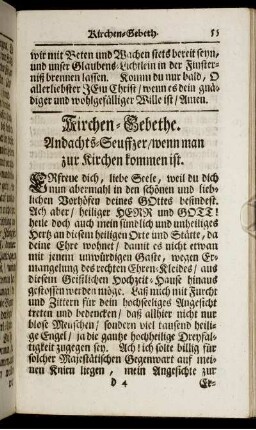 Kirchen-Gebeth. 55
wir mit Beten und Wachen stets bereit seyn,
und unser Glaubens-Lichtlein in der Finster-
niß brennen lassen. Komm du nur bald, O
allerliebster JEsu Christ / wenn es dein gnä-
diger und wohlgefälliger Wille ist / Amen.
Kirchen-Gebethe.
Andachts-Seuffzer / wenn man
zur Kirchen kommen ist.
ERfreue dich, liebe Seele, weil du dich
nun abermahl in den schönen und lieb-
lichen Vorhöfen deines GOttes befindest.
Ach aber / heiliger HERR und GOTT!
heile doch auch mein sündlich und unheiliges
Hertz an diesem heiligen Orte und Stätte, da
deine Ehre wohnet / damit es nicht etwan
mit jenem unwürdigen Gaste, wegen Er-
mangelung des rechten Ehren-Kleides / aus
diesem Geistlichen Hochzeit-Hause hinaus
gestossen werden möge. Laß mich mit Furcht
und Zittern für dein hochseeliges Angesicht
treten und bedencken / daß allhier nicht nur
blose Menschen / sondern viel tausend heili-
ge Engel / ja die gantze hochheilige Dreyfal-
tigkeit zugegen sey. Ach! ich solte billig für
solcher Majestätischen Gegenwart auf mei-
nen Knien liegen, mein Angesichte zur
D 4 Er-